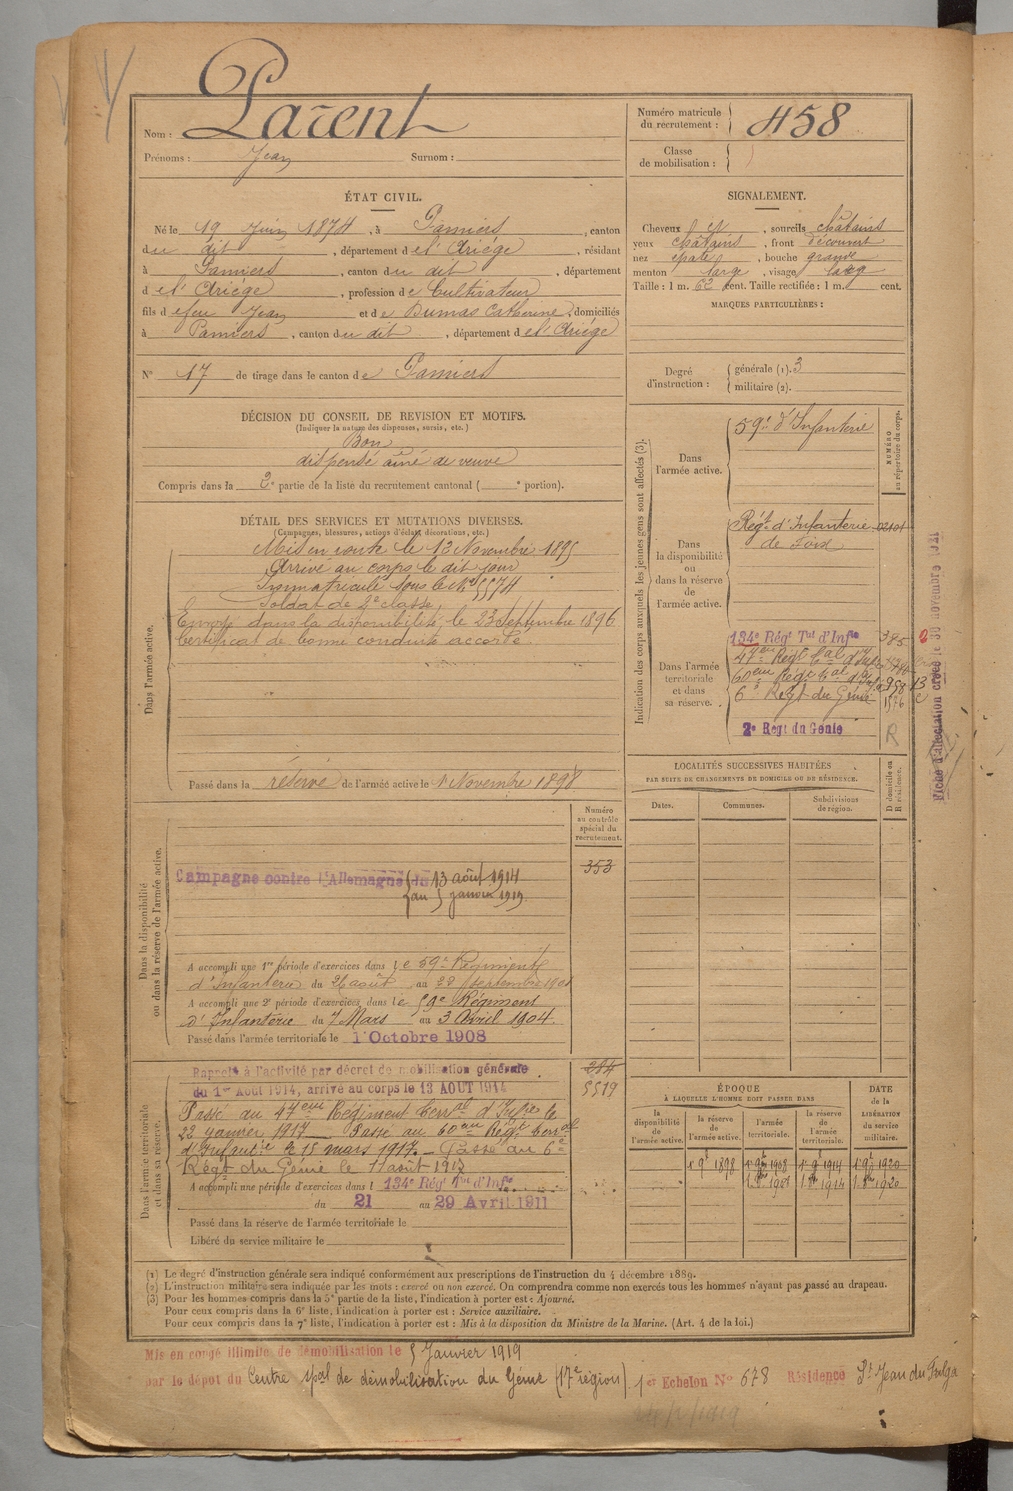 Nom : Parent
Prénoms : Jean Surnom :
Numéro matricule du recrutement : 458
Classe de mobilisation :
ÉTAT CIVIL.
Né le 19 Juin 1874, à Pamiers, canton
du dit, département de l'Ariége, résidant
à Pamiers, canton du dit, département
de l'Ariége, profession de Cultivateur
fils de feu Jean et de Dumas Catherine, domiciliés
à Pamiers, canton du dit, département de l'Ariége
N° 17 de tirage dans le canton de Pamiers
SIGNALEMENT.
Cheveux et, sourcils châtains
yeux châtains, front découvert
nez épaté, bouche grande
menton large, visage large
Taille : 1 m. 62 cent. Taille rectifiée : 1 m. cent.
MARQUES PARTICULIÈRES :
Degré d'instruction : générale (1). 3
militaire (2).
DÉCISION DU CONSEIL DE REVISION ET MOTIFS.
(Indiquer la nature des dispenses, sursis, etc.)
Bon
dispensé aîné de veuve
Compris dans la 2e partie de la liste du recrutement cantonal ( e portion).
DÉTAIL DES SERVICES ET MUTATIONS DIVERSES.
(Campagnes, blessures, actions d'éclat, décorations, etc.)
Dans l'armée active.
Mis en route le 13 Novembre 1895
Arrivé au corps le dit jour
Immatriculé sous le No 5574
Soldat de 2e classe,
Envoyé dans la disponibilité, le 23 Septembre 1896
Certificat de bonne conduite accordé.
Passé dans la réserve de l'armée active le 1 Novembre 1898
Indication des corps auxquels les jeunes gens sont affectés (3).
NUMÉRO au répertoire du corps.
Dans l'armée active.
59e d'Infanterie
Dans la disponibilité ou dans la réserve de l'armée active.
Régt d'Infanterie 02101
de Foix
Dans l'armée territoriale et dans sa réserve.
134e Régt Tal d'Infie 385
47eme Régt
60eme Régt 958
6e Régt du Génie 1576
2e Régt du Génie R
Fiche d'affectation créée le 30 novembre
LOCALITÉS SUCCESSIVES HABITÉES
PAR SUITE DE CHANGEMENTS DE DOMICILE OU DE RÉSIDENCE.
Dates. Communes. Subdivisions de région. D domicile ou R résidence.
Numéro au contrôle spécial du recrutement.
353
Dans la disponibilité ou dans la réserve de l'armée active.
Campagne contre l'Allemagne du 13 août 1914
au 5 janvier 1919
A accompli une 1re période d'exercices dans le 59e Régiment
d'Infanterie du 26 août au 22 septembre 1901
A accompli une 2e période d'exercices dans le 59e Régiment
d'Infanterie du 7 Mars au 3 Avril 1904.
Passé dans l'armée territoriale le 1 Octobre 1908
Dans l'armée territoriale et dans sa réserve.
Rappelé à l'activité par décret de mobilisation générale
du 1er Août 1914, arrivé au corps le 13 AOUT 1914
5519
Passé au 47eme Régiment Terral d'Infie le
22 janvier 1917 Passé au 60eme Régt Terral
d'Infanie le 15 mars 1917. – Passé au 6e
Régt du Génie le 11 août 1917
A accompli une période d'exercices dans l 134e Régt Tal d'Infie
du 21 au 29 Avril 1911
Passé dans la réserve de l'armée territoriale le
Libéré du service militaire le
ÉPOQUE
À LAQUELLE L'HOMME DOIT PASSER DANS
la disponibilité de l'armée active.
la réserve de l'armée active.
l'armée territoriale.
la réserve de l'armée territoriale.
DATE de la LIBÉRATION du service militaire.
1 9e 1898 1 9e 1908 1 9e 1914 1 9e 1920
1 8bre 1908 1 8bre 1914 1 8bre 1920
(1) Le degré d'instruction générale sera indiqué conformément aux prescriptions de l'instruction du 4 décembre 1889.
(2) L'instruction militaire sera indiquée par les mots : exercé ou non exercé. On comprendra comme non exercés tous les hommes n'ayant pas passé au drapeau.
(3) Pour les hommes compris dans la 5e partie de la liste, l'indication à porter est : Ajourné.
Pour ceux compris dans la 6e liste, l'indication à porter est : Service auxiliaire.
Pour ceux compris dans la 7e liste, l'indication à porter est : Mis à la disposition du Ministre de la Marine. (Art. 4 de la loi.)
Mis en congé illimité de démobilisation le 5 Janvier 1919
par le dépot du Centre spal de démobilisation du Génie (17e région). 1er Echelon No 678 Résidence St Jean du Falga